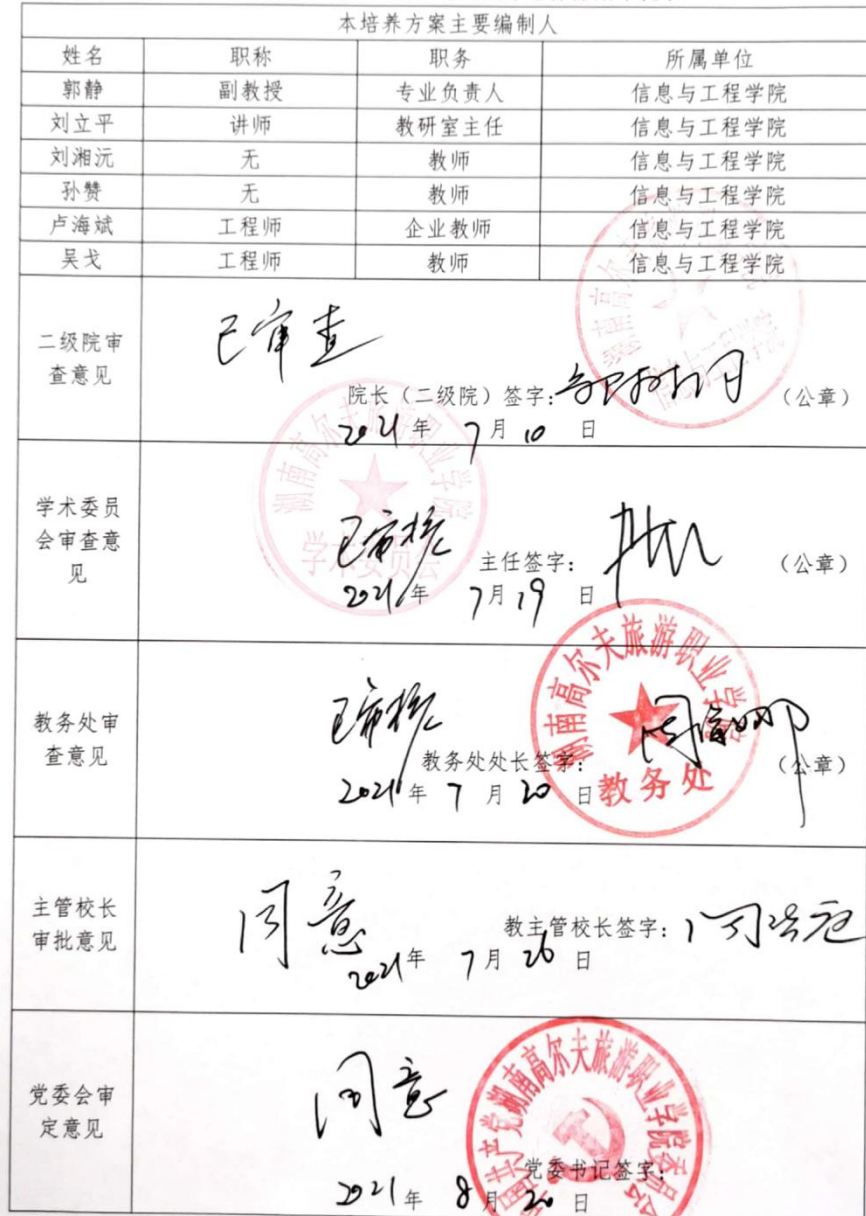 本培养方案主要编制人
姓名 职称 职务 所属单位
郭静 副教授 专业负责人 信息与工程学院
刘立平 讲师 教研室主任 信息与工程学院
刘湘沅 无 教师 信息与工程学院
孙赞 无 教师 信息与工程学院
卢海斌 工程师 企业教师 信息与工程学院
吴戈 工程师 教师 信息与工程学院
二级院审
查意见
已审查
院长（二级院）签字： （公章）
2021年 7月 10 日
湖南高尔夫旅游职业学院
学术委员会
学术委员
会审查意
见
已审核
主任签字： （公章）
2021年 7月19 日
教务处审
查意见
已审核
教务处处长签字： （公章）
2021年 7 月 20 日
湖南高尔夫旅游职业学院
教务处
主管校长
审批意见
同意
教主管校长签字：
2021年 7月 26 日
党委会审
定意见
同意
党委书记签字：
2021年 8月 20 日
共产党湖南高尔夫旅游职业学院委员会